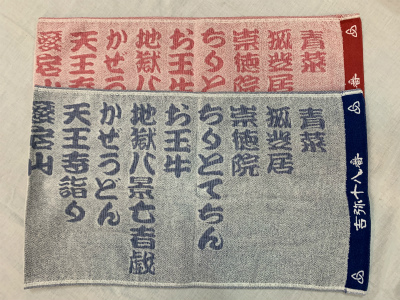 青菜
狐芝居
崇徳院
ちりとて
お玉牛
地獄八
かぜう
天王寺
愛宕山
番
青菜
狐芝居
崇徳院
ちりとてちん
お玉牛
地獄八景亡者戯
かぜうどん
天王寺詣り
愛宕山
吉弥十八番